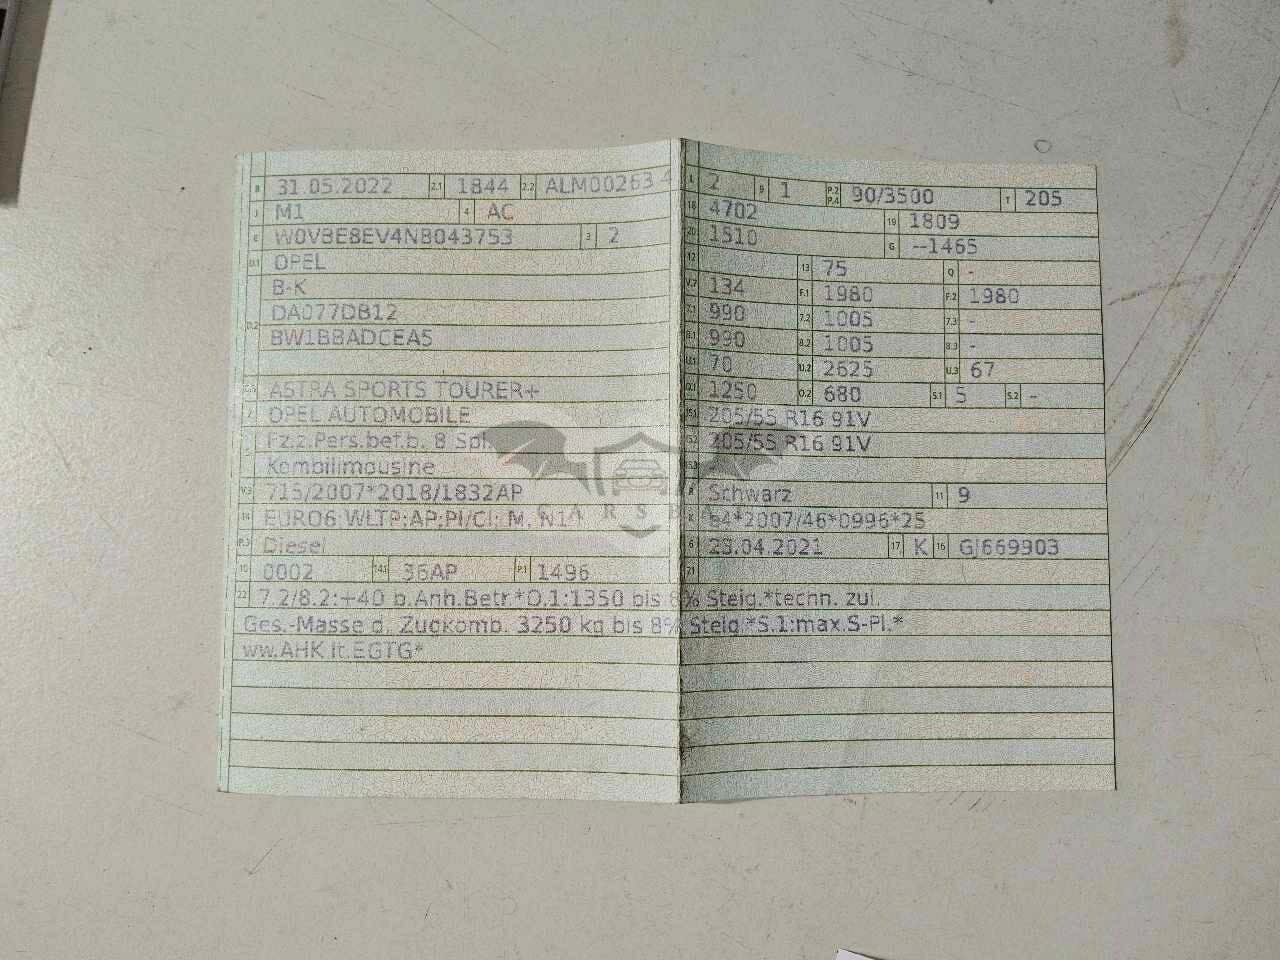 B 31.05.2022 2.1 1844 2.2 ALM00263 4
J M1 4 AC
E W0VBE8EV4N8043753 3 2
D.1 OPEL
B-K
D.2 DA077DB12
BW1BBADCEA5
D.3 ASTRA SPORTS TOURER+
2 OPEL AUTOMOBILE
Fz.z.Pers.bef.b. 8 Spl.
Kombilimousine
V.9 715/2007*2018/1832AP
14 EURO6;WLTP;AP;PI/CI; M, N1
P.3 Diesel
10 0002 14.1 36AP P.1 1496
22 7.2/8.2:+40 b.Anh.Betr*O.1:1350 bis 8% Steig.*techn. zul.
Ges.-Masse d. Zugkomb. 3250 kg bis 8% Steig.*S.1:max.S-Pl.*
ww.AHK lt.EGTG*
L 2 9 1 P.2 P.4 90/3500 T 205
18 4702 19 1809
20 1510 G --1465
12 13 75 Q -
V.7 134 F.1 1980 F.2 1980
7.1 990 7.2 1005 7.3 -
8.1 990 8.2 1005 8.3 -
U.1 70 U.2 2625 U.3 67
O.1 1250 O.2 680 S.1 5 S.2 -
15.1 205/55 R16 91V
15.2 205/55 R16 91V
15.3
R Schwarz 11 9
K e4*2007/46*0996*25
6 23.04.2021 17 K 16 GJ669903
21
CARSBAT